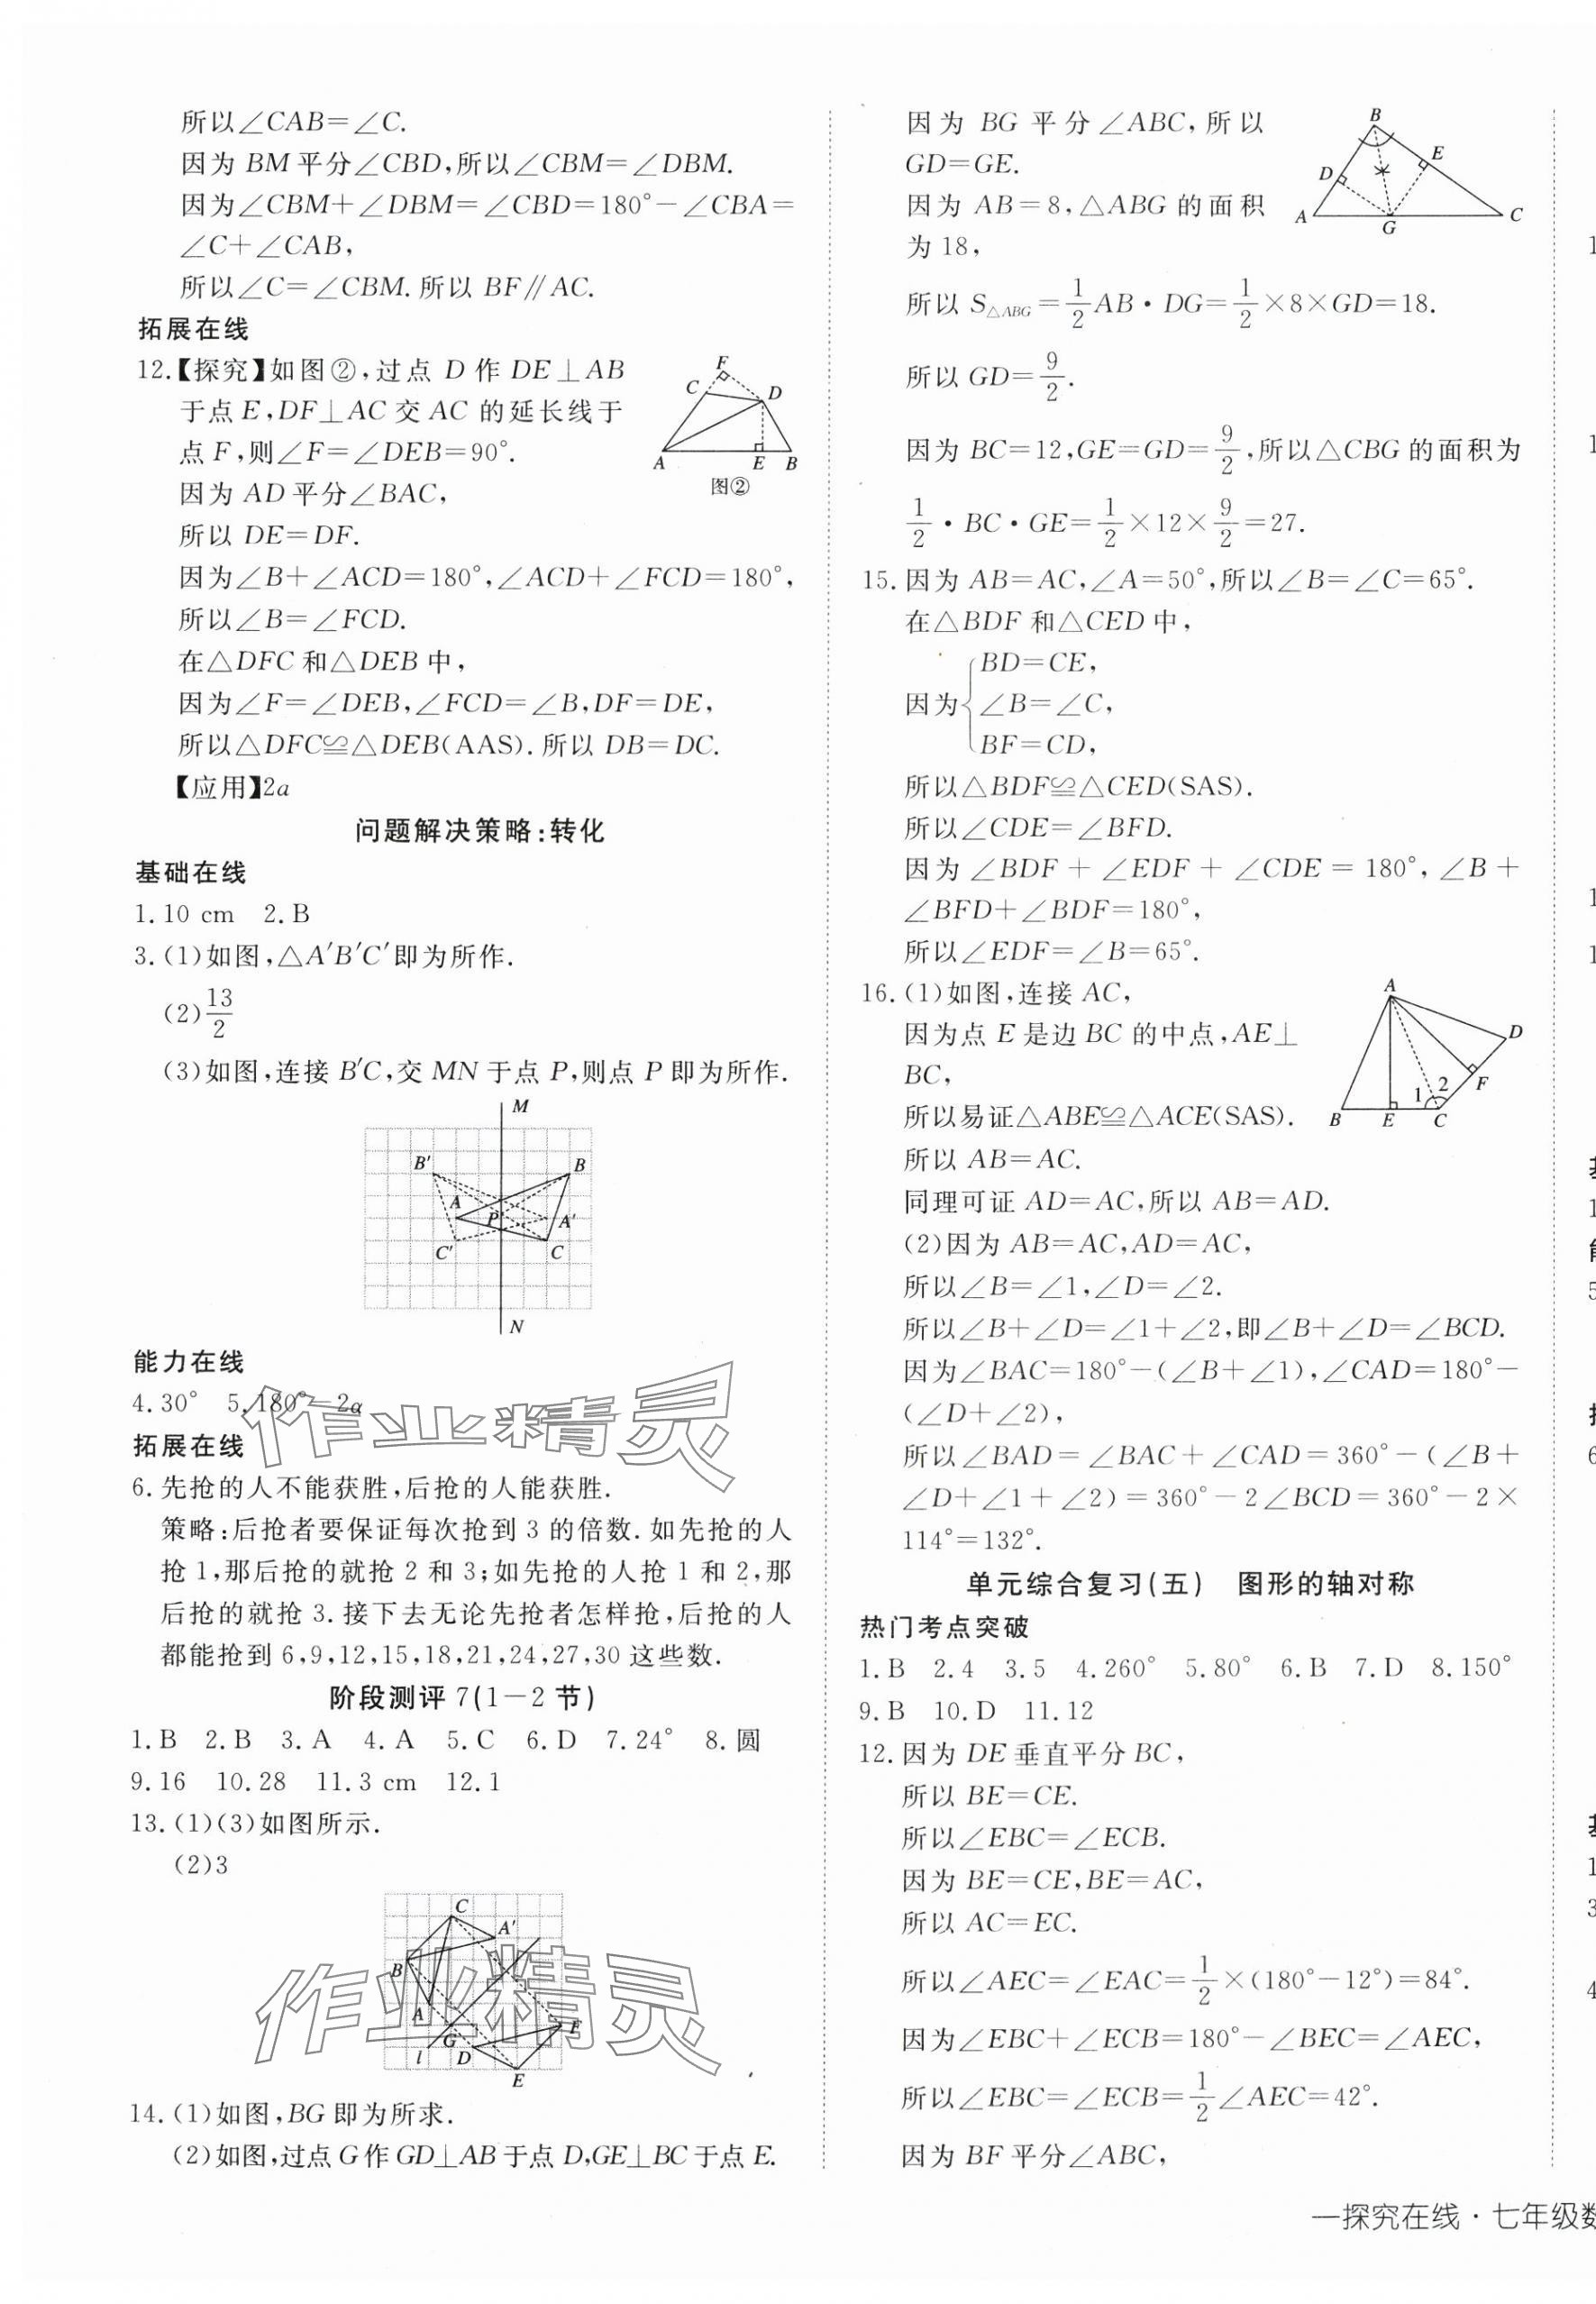 所以∠CAB=∠C.
因为 BM 平分∠CBD,所以∠CBM=∠DBM.
因为∠CBM+∠DBM=∠CBD=180°-∠CBA=
∠C+∠CAB,
所以∠C=∠CBM.所以 BF∥AC.
拓展在线
12.【探究】如图②,过点 D 作 DE⊥AB
于点 E,DF⊥AC 交 AC 的延长线于
点 F,则∠F=∠DEB=90°.
因为 AD 平分∠BAC,
所以 DE=DF.
F
C
D
A
E
B
图②
因为∠B+∠ACD=180°,∠ACD+∠FCD=180°,
所以∠B=∠FCD.
在△DFC 和△DEB 中,
因为∠F=∠DEB,∠FCD=∠B,DF=DE,
所以△DFC≌△DEB(AAS).所以 DB=DC.
【应用】2a
问题解决策略:转化
基础在线
1.10 cm 2.B
3.(1)如图,△A′B′C′即为所作.
(2)13/2
(3)如图,连接 B′C,交 MN 于点 P,则点 P 即为所作.
M
B′
B
A
P
A′
C′
C
N
能力在线
4.30° 5.180°-2α
拓展在线
6.先抢的人不能获胜,后抢的人能获胜.
策略:后抢者要保证每次抢到 3 的倍数.如先抢的人
抢 1,那后抢的就抢 2 和 3;如先抢的人抢 1 和 2,那
后抢的就抢 3.接下去无论先抢者怎样抢,后抢的人
都能抢到 6,9,12,15,18,21,24,27,30 这些数.
阶段测评 7(1-2 节)
1.B 2.B 3.A 4.A 5.C 6.D 7.24° 8.圆
9.16 10.28 11.3 cm 12.1
13.(1)(3)如图所示.
(2)3
C
A′
B
A
G
F
l
D
E
14.(1)如图,BG 即为所求.
(2)如图,过点 G 作 GD⊥AB 于点 D,GE⊥BC 于点 E.
因为 BG 平分∠ABC,所以
GD=GE.
因为 AB=8,△ABG 的面积
为 18,
B
E
D
A
G
C
所以 S△ABG=1/2AB·DG=1/2×8×GD=18.
所以 GD=9/2.
因为 BC=12,GE=GD=9/2,所以△CBG 的面积为
1/2·BC·GE=1/2×12×9/2=27.
15.因为 AB=AC,∠A=50°,所以∠B=∠C=65°.
在△BDF 和△CED 中,
BD=CE,
因为{∠B=∠C,
BF=CD,
所以△BDF≌△CED(SAS).
所以∠CDE=∠BFD.
因为∠BDF+∠EDF+∠CDE=180°,∠B+
∠BFD+∠BDF=180°,
所以∠EDF=∠B=65°.
16.(1)如图,连接 AC,
因为点 E 是边 BC 的中点,AE⊥
BC,
所以易证△ABE≌△ACE(SAS).
所以 AB=AC.
A
D
F
1
2
B
E
C
同理可证 AD=AC,所以 AB=AD.
(2)因为 AB=AC,AD=AC,
所以∠B=∠1,∠D=∠2.
所以∠B+∠D=∠1+∠2,即∠B+∠D=∠BCD.
因为∠BAC=180°-(∠B+∠1),∠CAD=180°-
(∠D+∠2),
所以∠BAD=∠BAC+∠CAD=360°-(∠B+
∠D+∠1+∠2)=360°-2∠BCD=360°-2×
114°=132°.
单元综合复习(五) 图形的轴对称
热门考点突破
1.B 2.4 3.5 4.260° 5.80° 6.B 7.D 8.150°
9.B 10.D 11.12
12.因为 DE 垂直平分 BC,
所以 BE=CE.
所以∠EBC=∠ECB.
因为 BE=CE,BE=AC,
所以 AC=EC.
所以∠AEC=∠EAC=1/2×(180°-12°)=84°.
因为∠EBC+∠ECB=180°-∠BEC=∠AEC,
所以∠EBC=∠ECB=1/2∠AEC=42°.
因为 BF 平分∠ABC,
一探究在线·七年级数
作业精灵
作业精灵